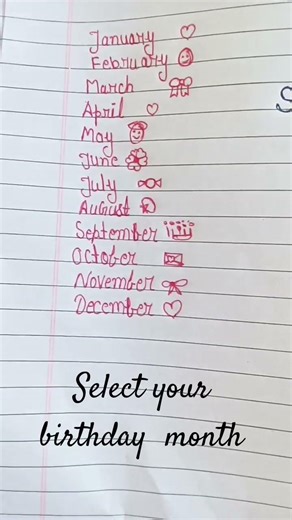 January
February
March
April
May
June
July
August
September
October
November
December
S
Select your
birthday month